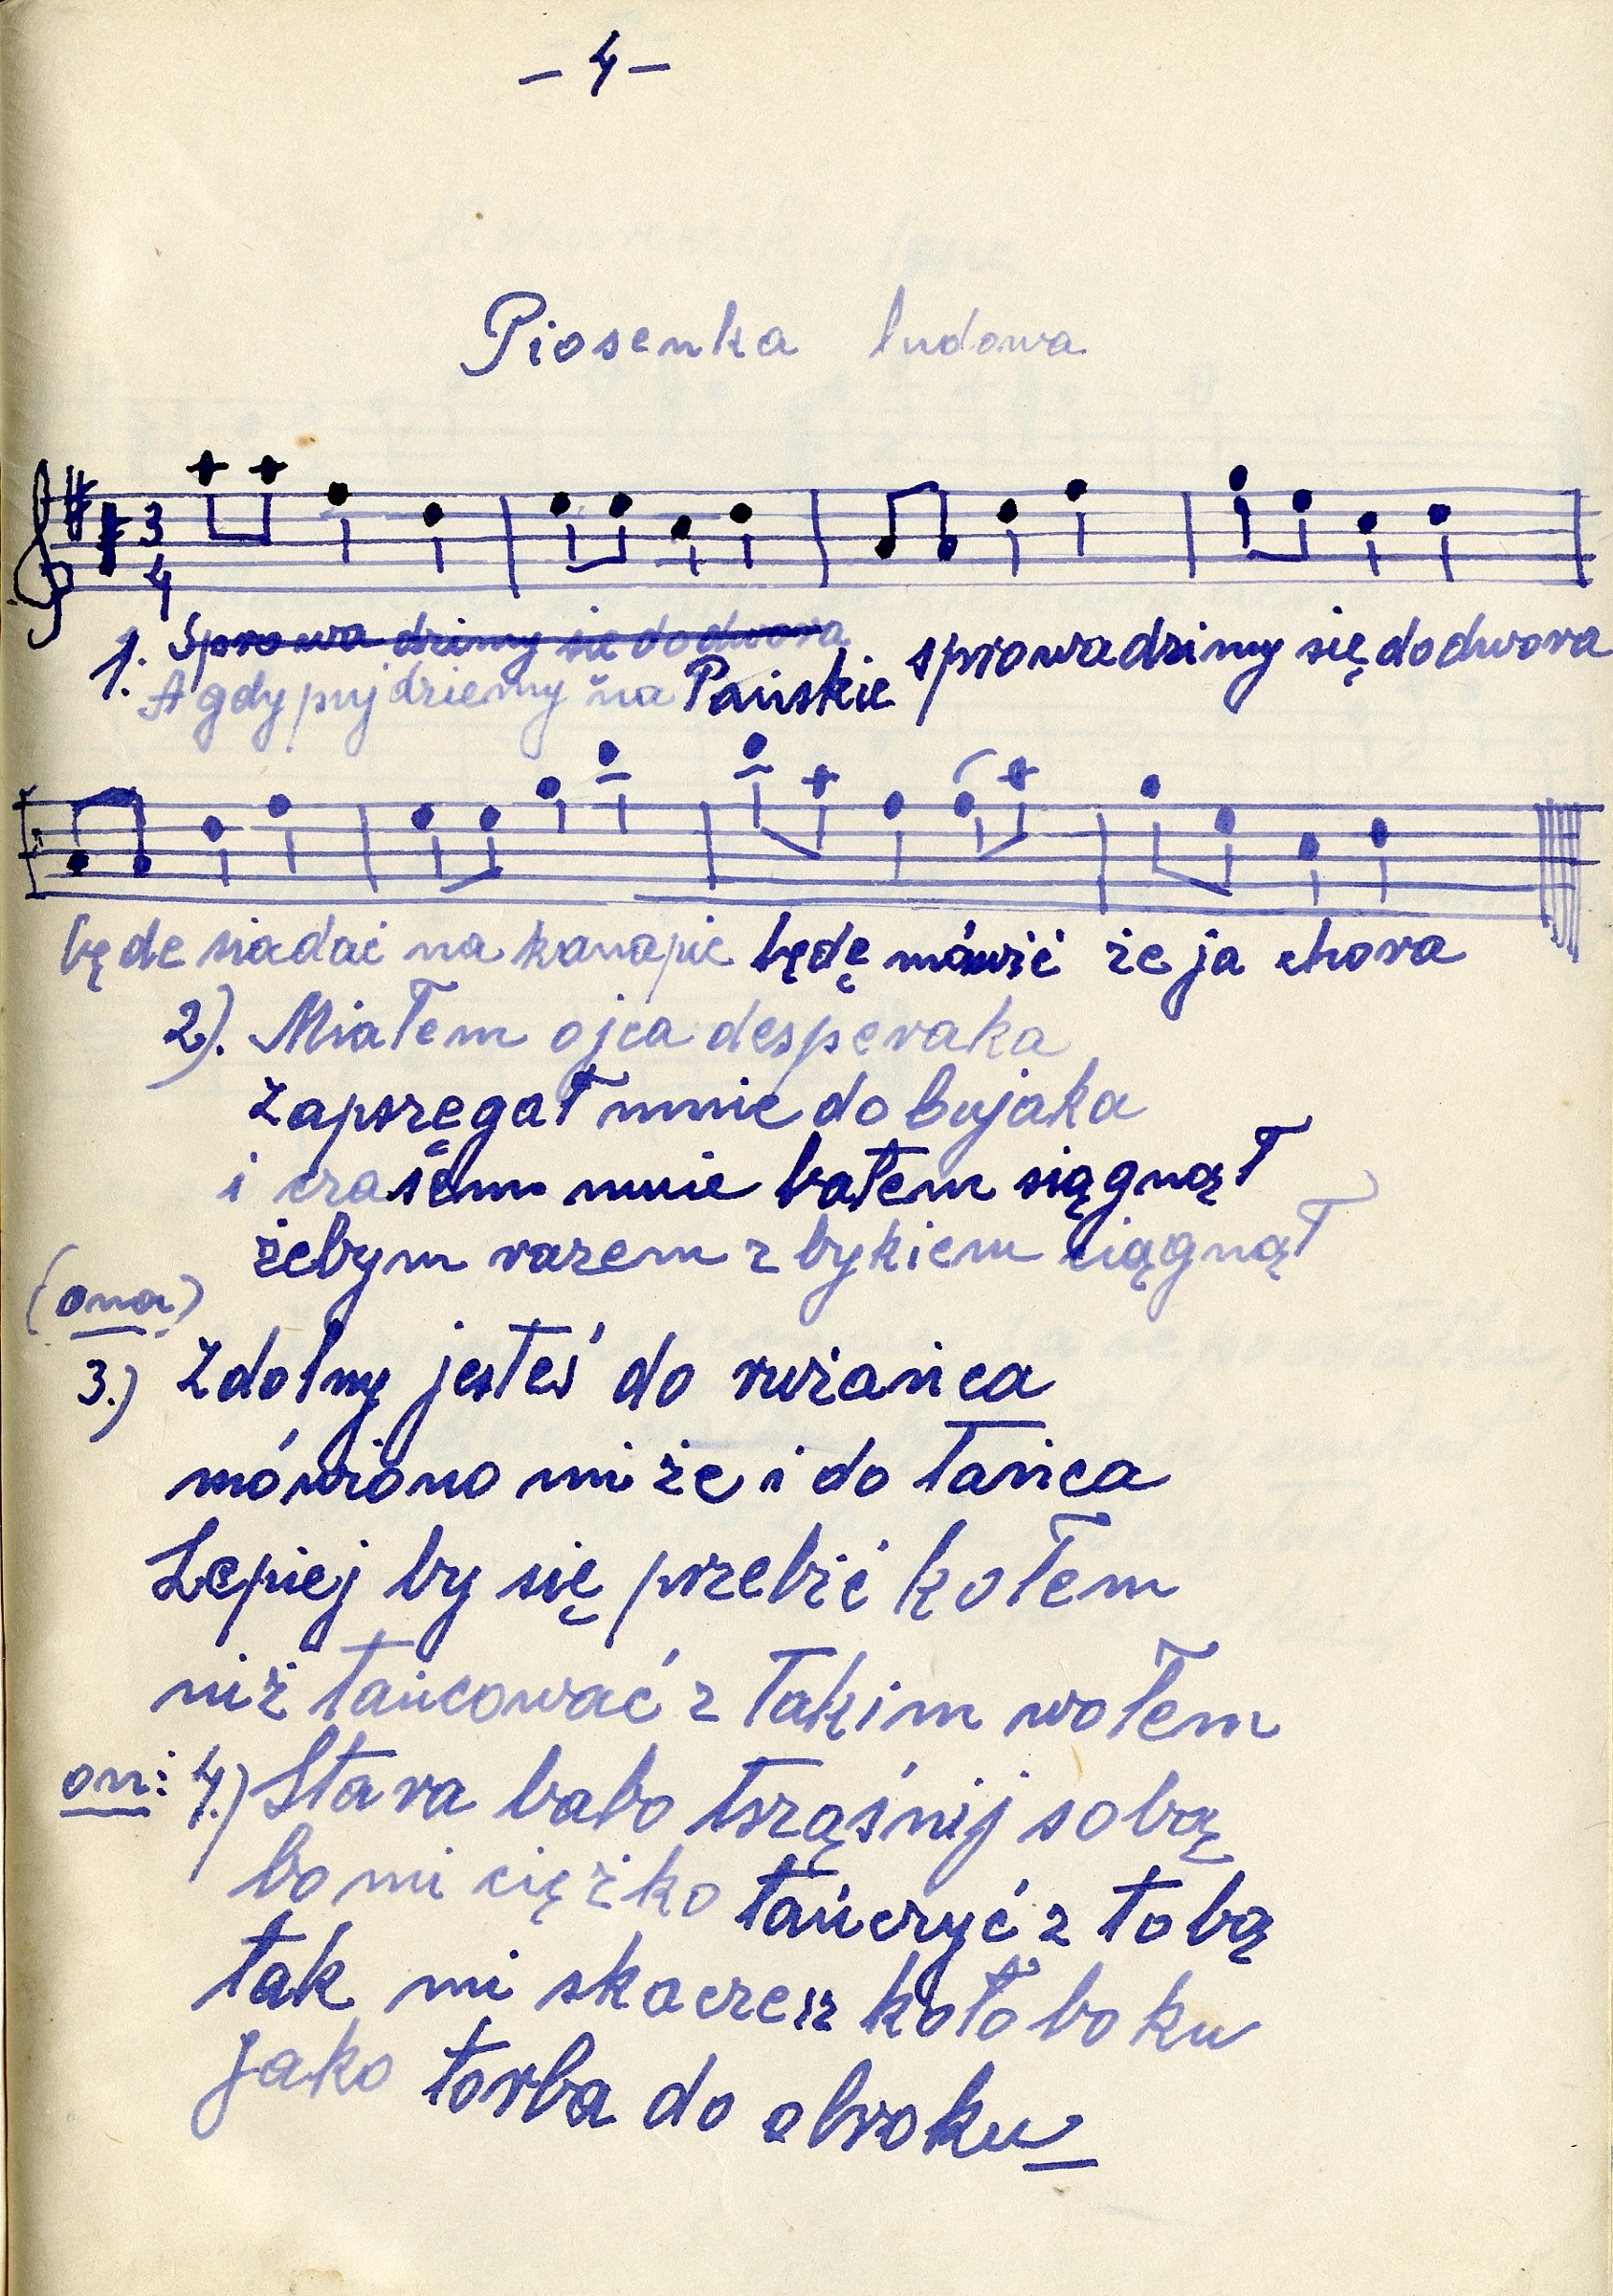 - 4 -
Piosenka ludowa
3
4
1. Sprowadzimy się do dwora
A gdy pujdziemy na Pańskie sprowadzimy się do dwora
będe siadać na kanapie będę mówić że ja chora
2). Miałem ojca desperaka
Zaprzęgał mnie do bujaka
i czasem mnie batem siągnął
żebym razem z bykiem ciągnął
(ona)
3.) Zdolny jesteś do rużańca
mówiono mi że i do tańca
Lepiej by się przebić kołem
niż tańcować z takim wołem
on: 4.) Stara babo tsząśnij sobą
bo mi ciężko tańczyć z tobą
tak mi skaczesz koło boku
jako torba do obroku